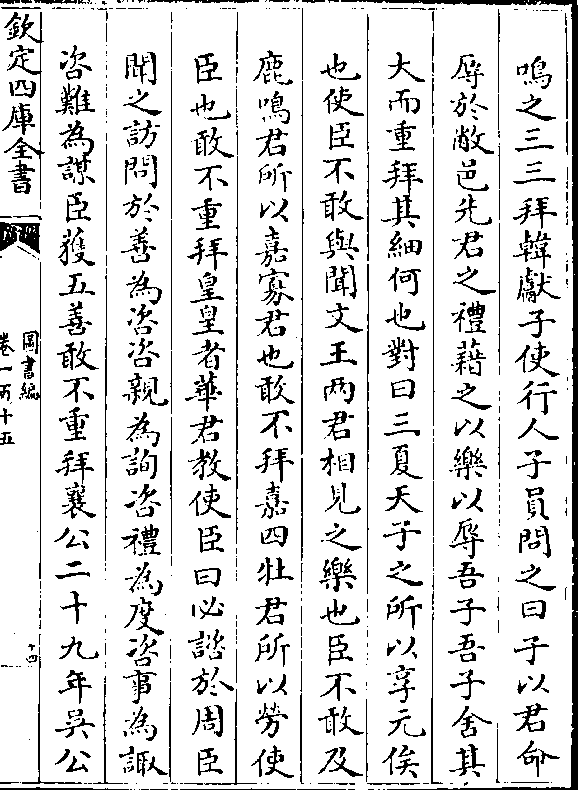 鳴之三三拜韓獻子使行人子員問之曰子以君命
辱於敝邑先君之禮藉之以樂以辱吾子吾子舍其
大而重拜其細何也對曰三夏天子之所以享元侯
也使臣不敢與聞文王两君相見之樂也臣不敢及
鹿鳴君所以嘉寡君也敢不拜嘉四牡君所以勞使
臣也敢不重拜皇皇者華君教使臣曰必諮於周臣
聞之訪問於善為咨咨親為詢咨禮為度咨事為諏
咨難為謀臣獲五善敢不重拜襄公二十九年吳公
欽定四庫全書
圖書編
卷一百十五
十四